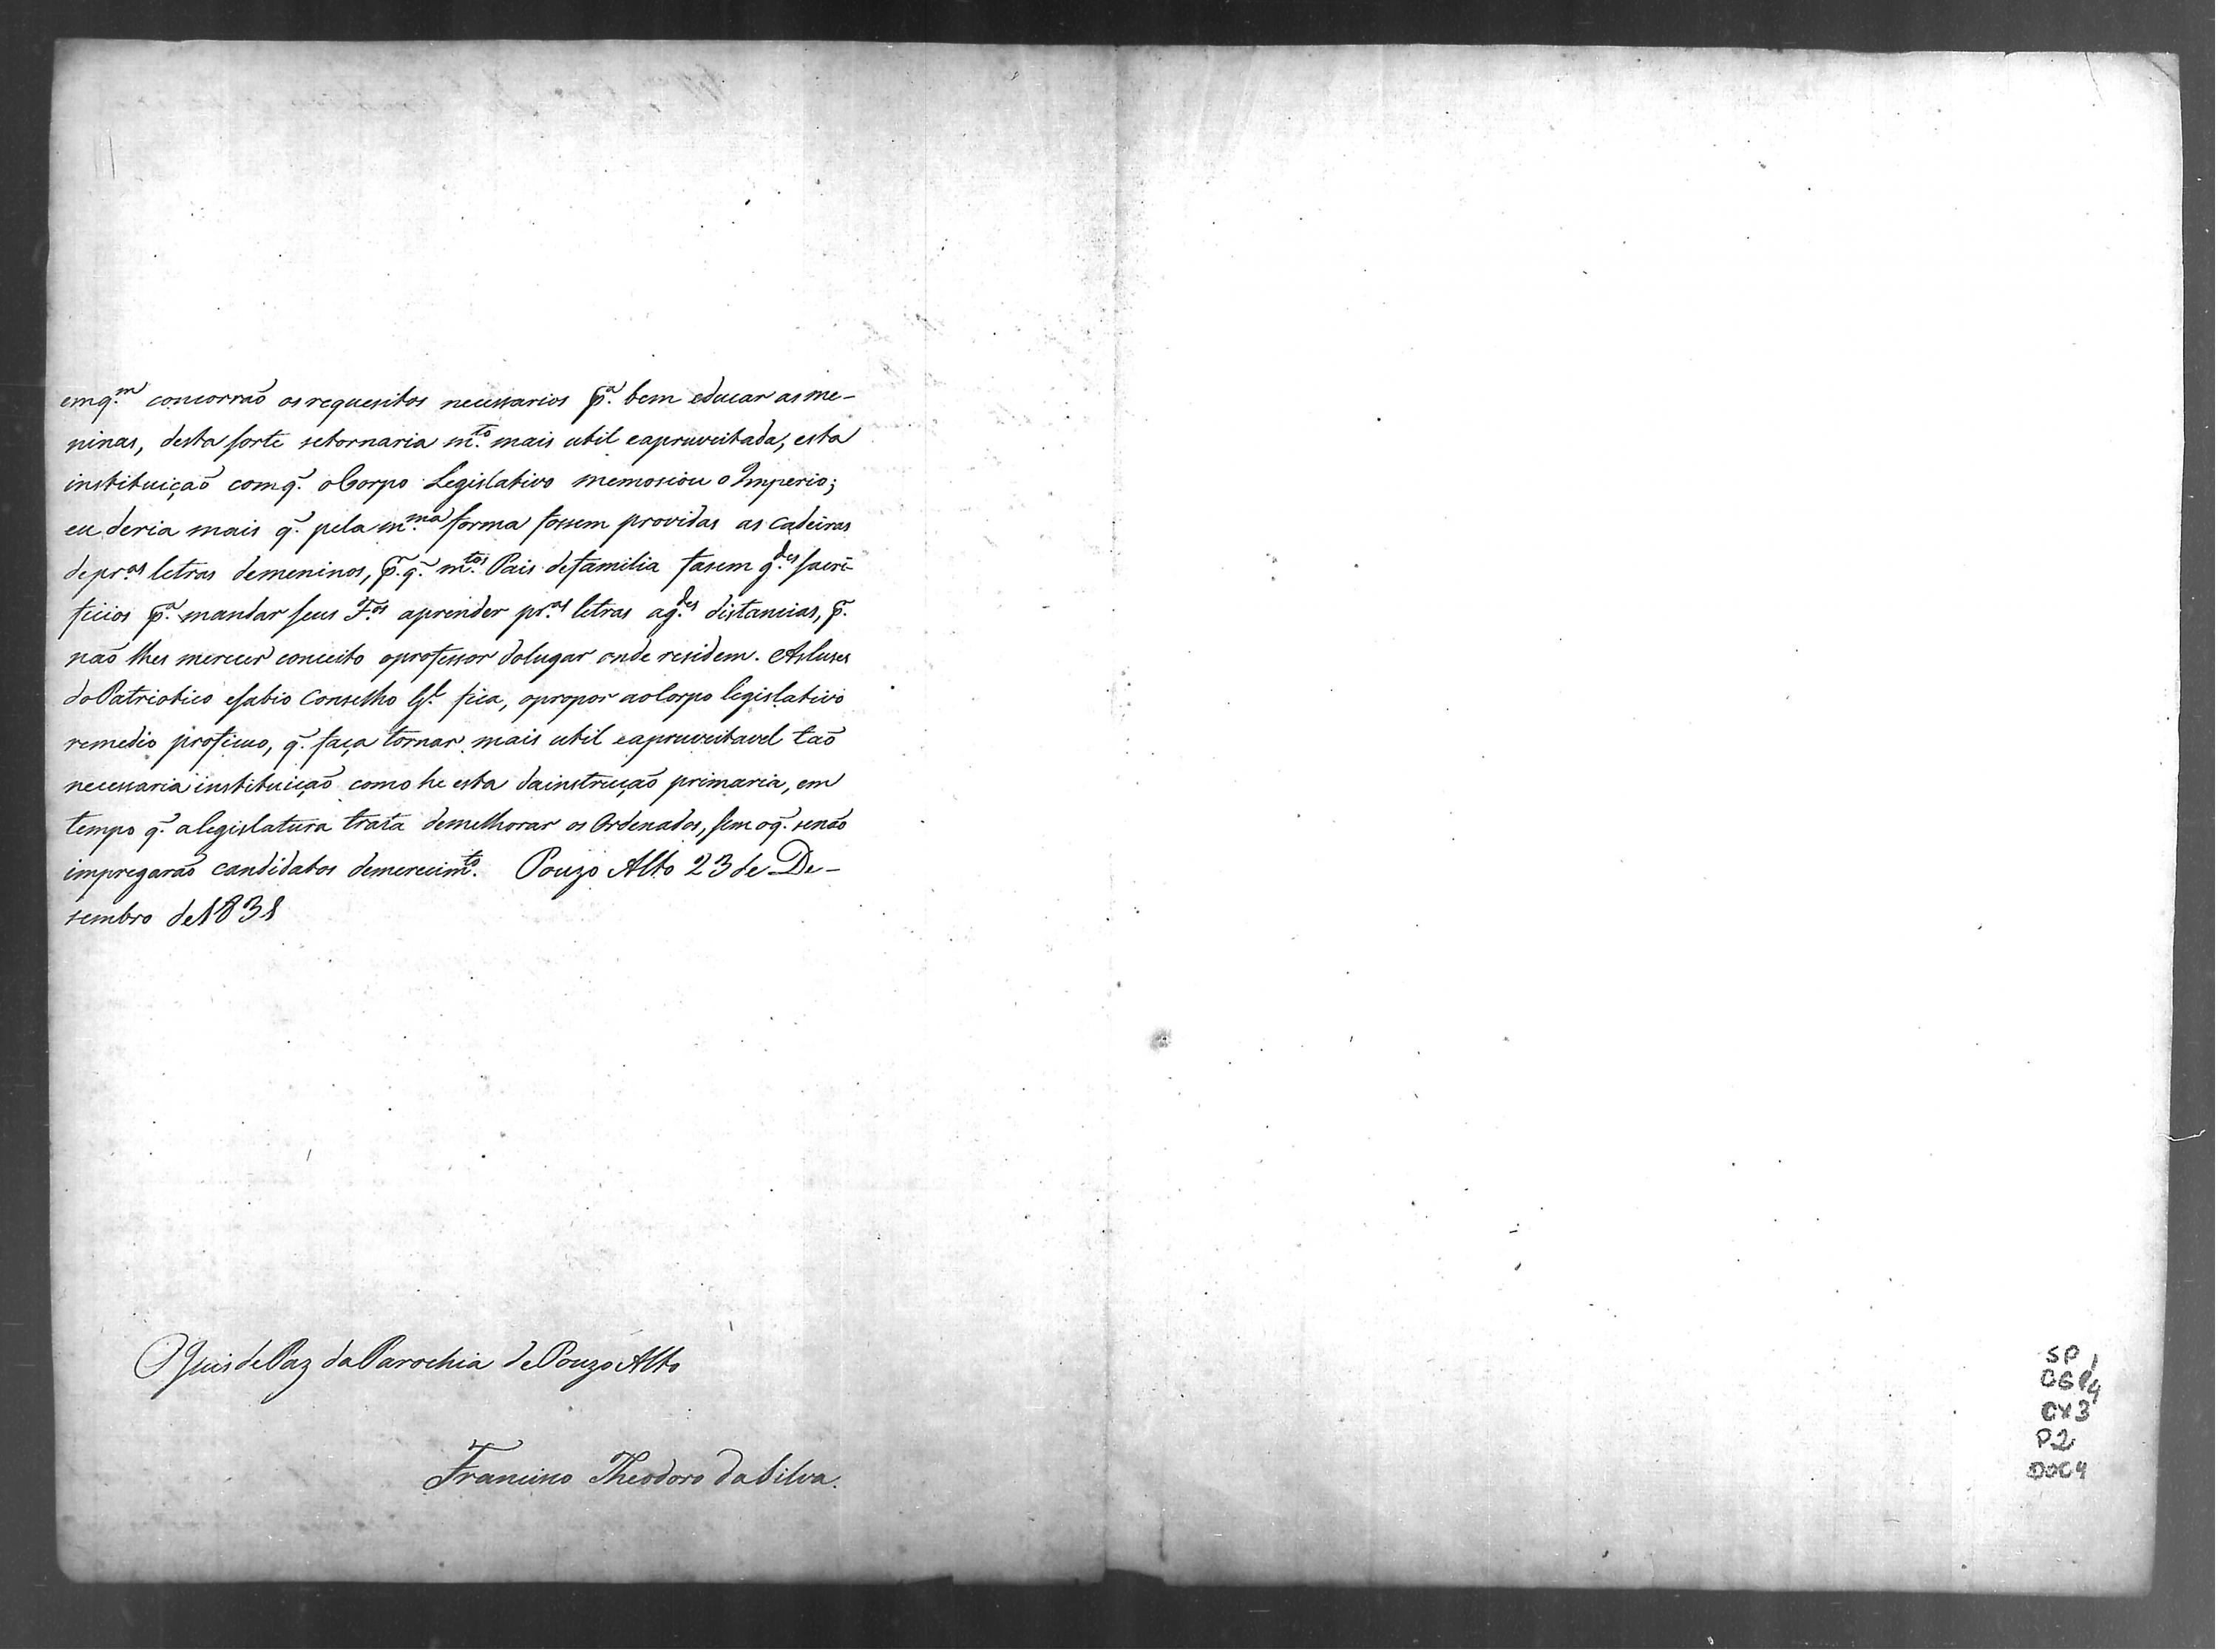 emq.m concorraõ os requesitos necessarios p.a bem educar as me-
ninas, desta sorte setornaria m.to mais util eapruveitada, esta
instituiçaõ comq.̃ oCorpo Legislativo memosiou o Imperio;
eu deria mais q.̃ pela m.ma forma fossem providas as cadeiras
depr.as letras demeninos, p.̃ q.̃ m.tos Pais defamilia fasem g.des sacri-
ficios p.a mandar seus F.os aprender pr.as letras ag.des distancias, p.̃
naõ lhes merecer conceito oprofessor dolugar onde residem. Asluses
doPatriotico esabio Conselho G.l fica, opropor aoCorpo legislativo
remedio proficuo, q.̃ faça tornar mais util eapruveitavel taõ
necessaria instituiçaõ como he esta dainstruçaõ primaria, em
tempo q.̃ alegislatura trata demelhorar os Ordenados, sem oq.̃ senaõ
impregaraõ candidatos demerecim.to Pouzo Alto 23 de De-
sembro de1831
O Juis dePaz daParochia dePouzo Alto
Francisco Theodoro daSilva.
SP 1
CGP4
CX3
P2
DOC4